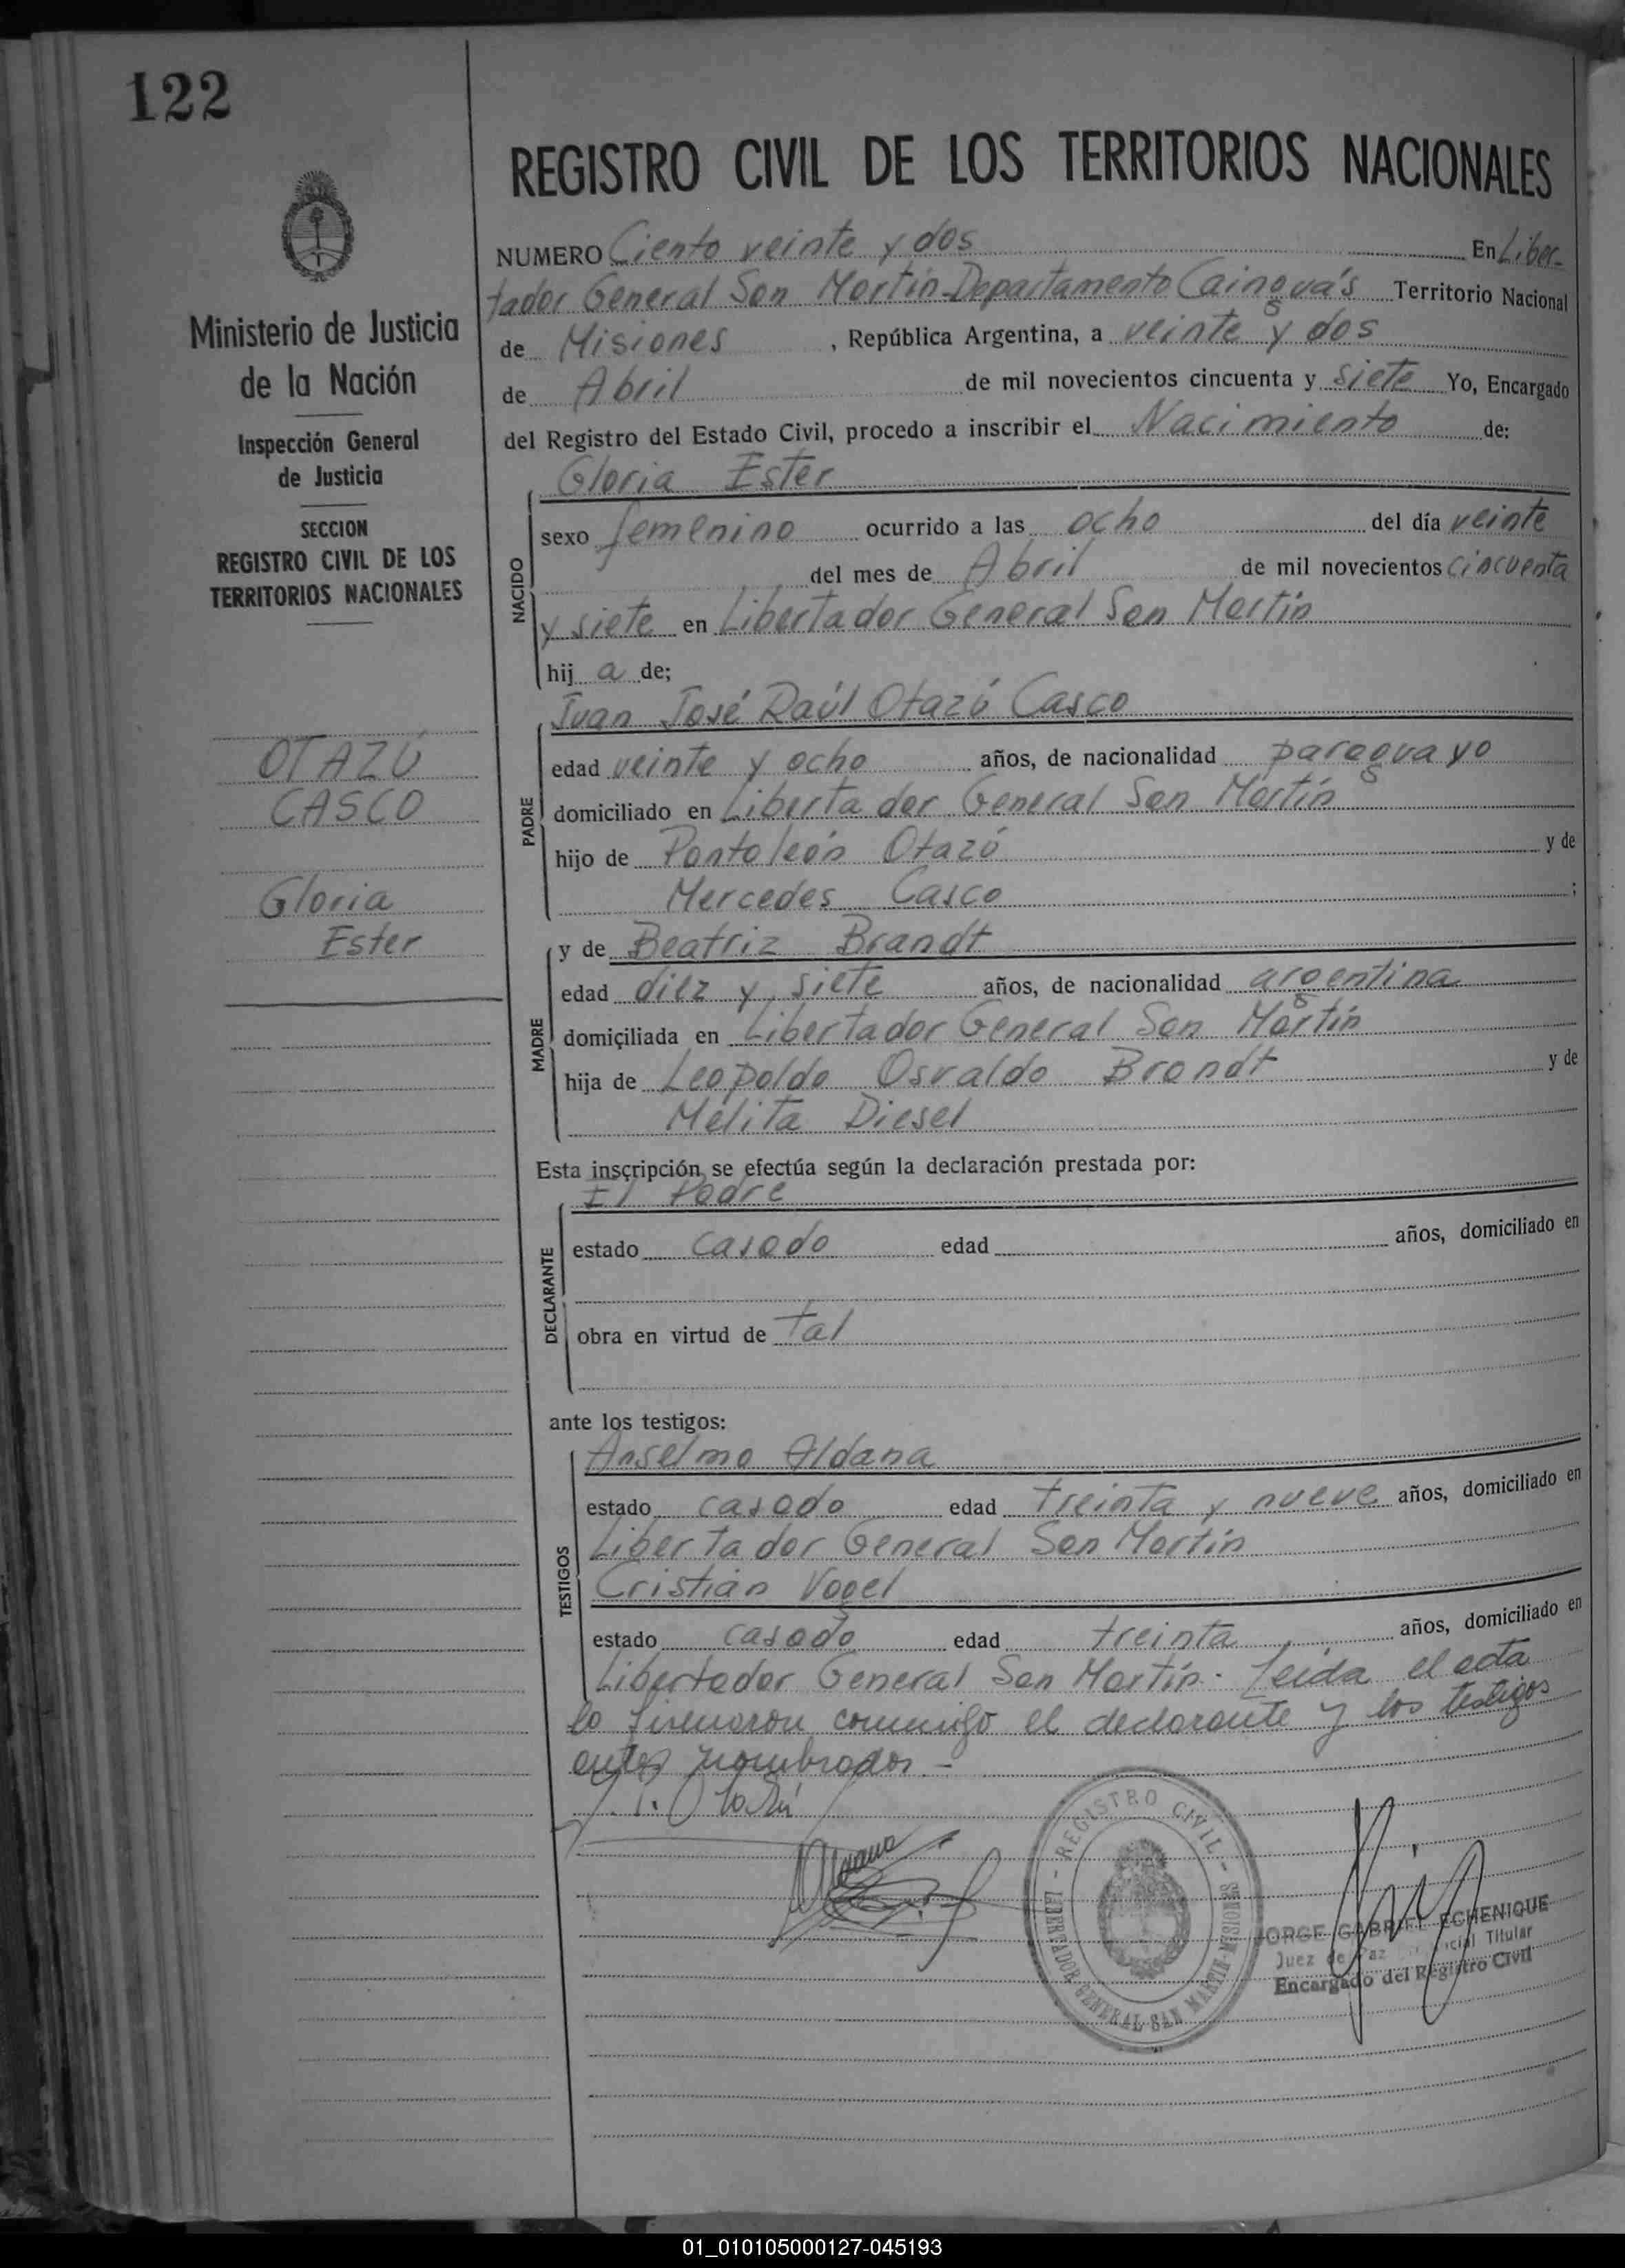 122
REGISTRO CIVIL DE LOS TERRITORIOS NACIONALES
Ministerio de Justicia
de la Nación
Inspección General
de Justicia
SECCION
REGISTRO CIVIL DE LOS
TERRITORIOS NACIONALES
OTAZÚ
CASCO
Gloria
Ester
NUMERO Ciento veinte y dos En Liber-
tador General San Martín-Departamento Cainguás Territorio Nacional
de Misiones , República Argentina, a veinte y dos
de Abril de mil novecientos cincuenta y siete Yo, Encargado
del Registro del Estado Civil, procedo a inscribir el Nacimiento de:
NACIDO
Gloria Ester
sexo femenino ocurrido a las ocho del día veinte
del mes de Abril de mil novecientos cincuenta
y siete en Libertador General San Martín
hij a de;
PADRE
Juan José Raúl Otazú Casco
edad veinte y ocho años, de nacionalidad paraguayo
domiciliado en Libertador General San Martín
hijo de Pantoleón Otazú y de
Mercedes Casco ;
MADRE
y de Beatriz Brandt
edad diez y siete años, de nacionalidad argentina
domiciliada en Libertador General San Martín
hija de Leopoldo Osvaldo Brandt y de
Mélita Diesel
Esta inscripción se efectúa según la declaración prestada por:
DECLARANTE
El Padre
estado casado edad años, domiciliado en
obra en virtud de tal
ante los testigos:
TESTIGOS
Anselmo Aldana
estado casado edad treinta y nueve años, domiciliado en
Libertador General San Martín
Cristián Vogel
estado casado edad treinta años, domiciliado en
Libertador General San Martín. Leída el acta
la firmaron conmigo el declarante y los testigos
antes nombrados.-
REGISTRO CIVIL
LIBERTADOR GENERAL SAN MARTIN - MISIONES
JORGE GABRIEL ECHENIQUE
Juez de Paz Titular
Encargado del Registro Civil
01_010105000127-045193